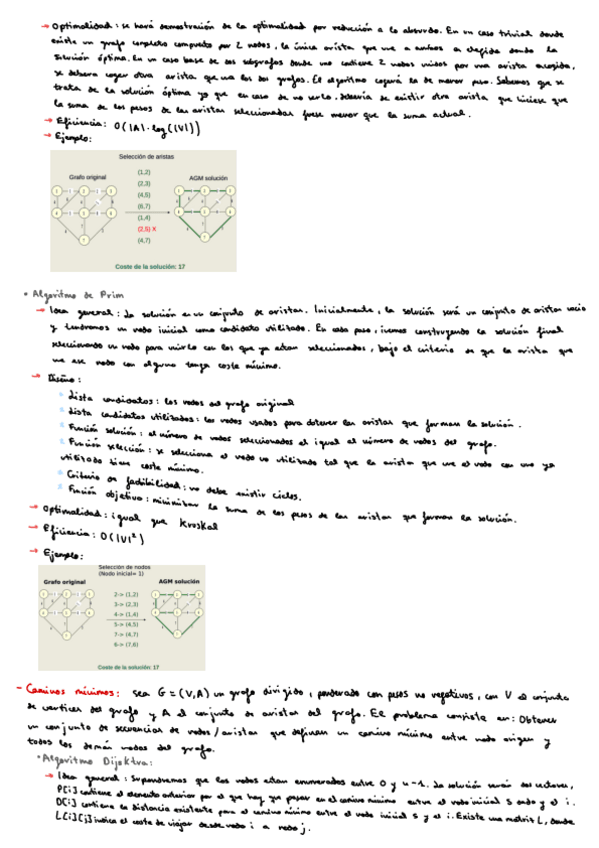 → Optimalidad: se hará demostración de la optimalidad por reducción a lo absurdo. En un caso trivial donde
existe un grafo completo compuesto por 2 nodos, la única arista que une a ambos es elegida dando la
solución óptima. En un caso base de dos subgrafos donde uno contiene 2 nodos unidos por una arista escogida,
se deberá coger otra arista que una los dos grafos. El algoritmo cogerá la de menor peso. Sabemos que se
trata de la solución óptima ya que en caso de no serlo, debería de existir otra arista que hiciese que
la suma de los pesos de las aristas seleccionadas fuese menor que la suma actual.
→ Eficiencia: O(|A|·log(|V|))
→ Ejemplo:
Selección de aristas
Grafo original
AGM solución
(1,2)
(2,3)
(4,5)
(6,7)
(1,4)
(2,5) X
(4,7)
Coste de la solución: 17
• Algoritmo de Prim
→ Idea general: La solución es un conjunto de aristas. Inicialmente, la solución será un conjunto de aristas vacío
y tendremos un nodo inicial como candidato utilizado. En cada paso, iremos construyendo la solución final
seleccionando un nodo para unirlo con los que ya estan seleccionados, bajo el criterio de que la arista que
une ese nodo con alguno tenga coste mínimo.
→ Diseño:
Lista candidatos: los nodos del grafo original
Lista candidatos utilizados: los nodos usados para obtener las aristas que forman la solución.
Función solución: el número de nodos seleccionados es igual al número de nodos del grafo.
Función selección: se selecciona el nodo no utilizado tal que la arista que une el nodo con uno ya
utilizado tiene coste mínimo.
Criterio de factibilidad: no debe existir ciclos.
Función objetivo: minimizar la suma de los pesos de las aristas que forman la solución.
→ Optimalidad: igual que Kruskal
→ Eficiencia: O(|V|²)
→ Ejemplo:
Selección de nodos
(Nodo inicial= 1)
Grafo original
AGM solución
2-> (1,2)
3-> (2,3)
4-> (1,4)
5-> (4,5)
7-> (4,7)
6-> (7,6)
Coste de la solución: 17
- Caminos mínimos: sea G=(V,A) un grafo dirigido, ponderado con pesos no negativos, con V el conjunto
de vertices del grafo y A el conjunto de aristas del grafo. El problema consiste en: Obtener
un conjunto de secuencias de nodos/aristas que definan un camino mínimo entre nodo origen y
todos los demás nodos del grafo.
• Algoritmo Dijsktra:
→ Idea general: Supondremos que los nodos estan enumerados entre 0 y n-1. La solución serán dos vectores,
P[i] contiene el elemento anterior por el que hay que pasar en el camino mínimo entre el nodo inicial s dado y el i.
D[i] contiene la distancia existente para el camino mínimo entre el nodo inicial s y el i. Existe una matriz L, donde
L[i][j] indica el coste de viajar desde nodo i a nodo j.